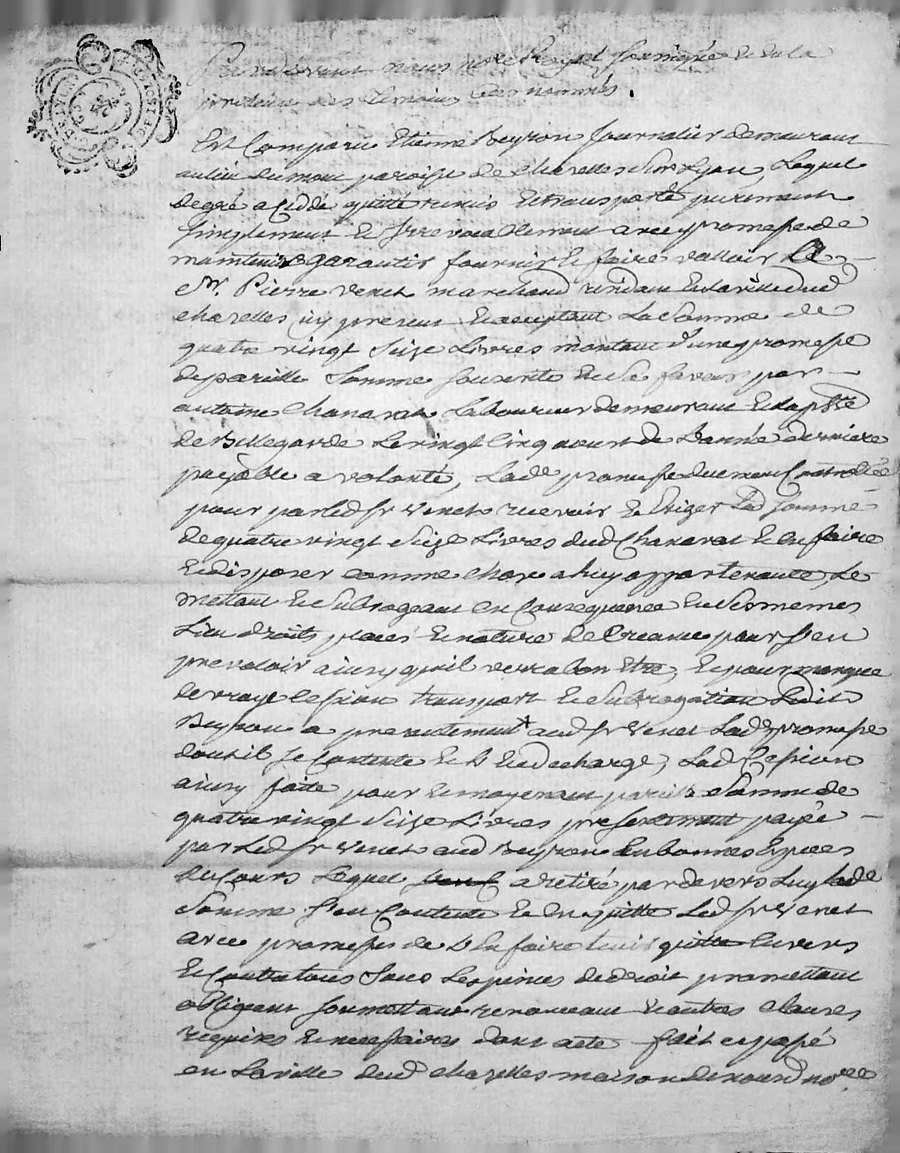 Pardevant nous no.re Royal soussigné et en la
presence des temoins cy nommés.
Est Comparu Etienne Beyron Journalier demeurant
au lieu du mont paroisse de Chazelles sur Lyon, Lequel
de gré a Cedé quitté remis et transporté purement
simplement et Irrevocablement avec promesse de
maintenir garantir fournir et faire valloir a
Sr. Pierre Venet marchand residant en la ville dud
chazelles icy present et acceptant La somme de
quatre vingt seize Livres montant d'une promesse
de pareille somme souscrite en sa faveur par
antoine Chanavat Laboureur demeurant en la psse
de Bellegarde Le vingt cinq aoust de L'année derniere
payable a volonté, Lade promesse duement Controllée
pour par led sr Venet recevoir et Exiger Lad somme
de quatre vingt seize Livres dud Chanavat et en faire
et disposer comme chose a luy appartenante, Le
mettant et subrogeant en Consequence en ses memes
Lieu droits places et nature de Creance pour s'en
prevaloir ainsy qu'il verra bon Etre, et pour marque
de vraye Cession transport et subrogation Ledit
Beyron a presentement aud sr Venet Lad promesse
dont il se Contente et L'en decharge, Lad Cession
ainsy faite pour et moyenant pareille somme de
quatre vingt seize Livres presentement payée
par Led sr Venet aud Beyron en bonnes Especes
de Cours Lequel a retiré par devers Luy lade
somme s'en Contente et en quitte Led sr Venet
avec promesse de L'en faire tenir quitte Envers
et Contre tous sous Les peines de droit promettant
obligeant soumettant renonceant et autres clauses
requises et necessaires dont acte fait et passé
en La ville dud chazelles maison de nousd no.re